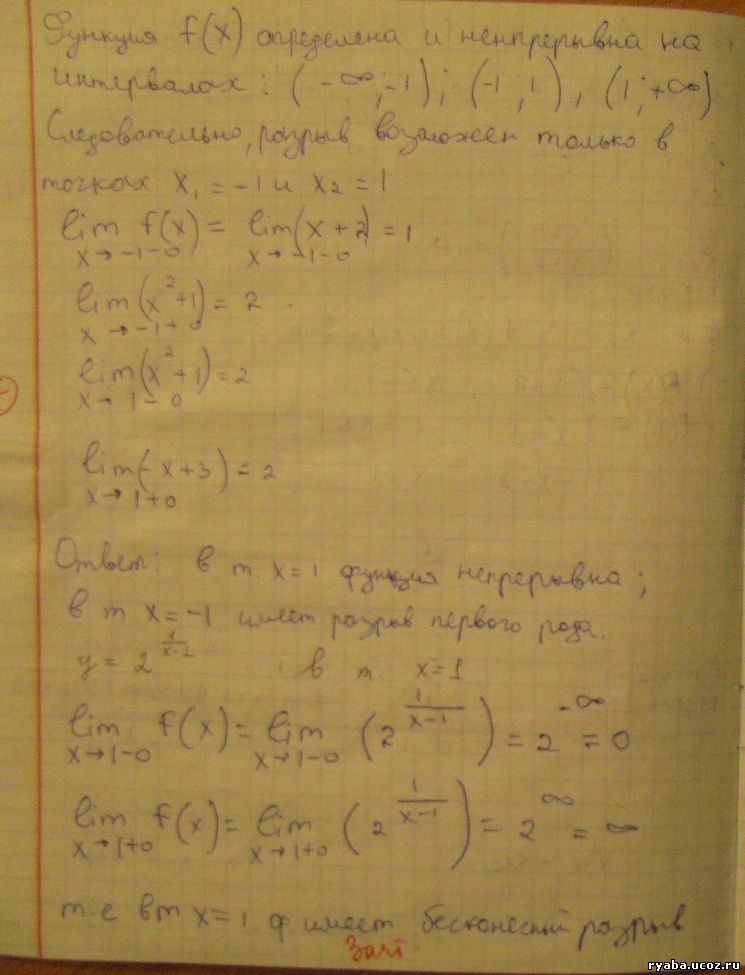 Функция f(x) определена и ненпрерывна на
интервалах: (-∞;-1); (-1,1), (1;+∞)
Следовательно, разрыв возможен только в
точках x₁ = -1 и x₂ = 1
lim f(x) = lim(x+2) = 1
x→-1-0 x→-1-0
lim(x²+1) = 2
x→-1+0
lim(x²+1) = 2
x→1-0
lim(-x+3) = 2
x→1+0
Ответ: в т x=1 функция непрерывна;
в т x=-1 имеет разрыв первого рода.
y = 2 в т. x=1
lim f(x) = lim (2^(1/(x-1))) = 2^(-∞) = 0
x→1-0 x→1-0
lim f(x) = lim (2^(1/(x-1))) = 2^∞ = ∞
x→1+0 x→1+0
т.е в т x=1 ф имеет разрыв
Зачт.
ryaba.ucoz.ru